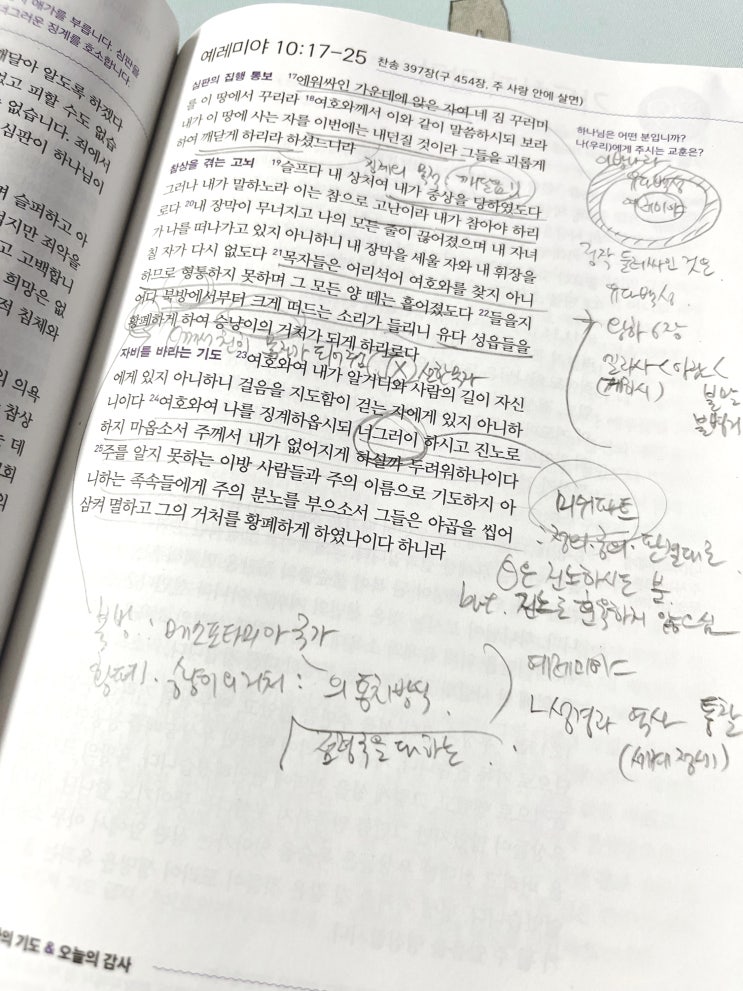 애가를 부릅니다. 심판을
징계를 호소합니다.
깨달아 알도록 하겠다
피할 수도 없습
없습니다. 죄에서
심판이 하나님이
슬퍼하고 아
지만 죄악을
고 고백합니
희망은 없
적 침체와
의 의욕
참상
는 데
예레미야 10:17-25 찬송 397장(구 454장, 주 사랑 안에 살면)
심판의 집행 통보 17에워싸인 가운데에 앉은 자여 네 짐 꾸러미
를 이 땅에서 꾸리라 18여호와께서 이와 같이 말씀하시되 보라
내가 이 땅에 사는 자를 이번에는 내던질 것이라 그들을 괴롭게
하여 깨닫게 하리라 하셨느니라
징계의 목적 (깨달음!)
참상을 겪는 고뇌 19슬프다 내 상처여 내가 중상을 당하였도다
그러나 내가 말하노라 이는 참으로 고난이라 내가 참아야 하리
로다 20내 장막이 무너지고 나의 모든 줄이 끊어졌으며 내 자녀
가 나를 떠나가고 있지 아니하니 내 장막을 세울 자와 내 휘장을
칠 자가 다시 없도다 21목자들은 어리석어 여호와를 찾지 아니
하므로 형통하지 못하며 그 모든 양 떼는 흩어졌도다 22들을지
어다 북방에서부터 크게 떠드는 소리가 들리니 유다 성읍들을
황폐하게 하여 승냥이의 거처가 되게 하리로다
자비를 바라는 기도 23여호와여 내가 알거니와 사람의 길이 자신
에게 있지 아니하니 걸음을 지도함이 걷는 자에게 있지 아니하
니이다 24여호와여 나를 징계하옵시되 너그러이 하시고 진노로
하지 마옵소서 주께서 내가 없어지게 하실까 두려워하나이다
25주를 알지 못하는 이방 사람들과 주의 이름으로 기도하지 아
니하는 족속들에게 주의 분노를 부으소서 그들은 야곱을 씹어
삼켜 멸하고 그의 거처를 황폐하게 하였나이다 하니라
하나님은 어떤 분입니까?
나(우리)에게 주시는 교훈은?
이방나라
유다백성
예레미야
정작 둘러싸인 것은
유다백성
왕하 6장
엘리사 < 아람 <
불말
불병거
미쉬파트
: 정의. 공의. 판결대로
은 진노하시는 분
but. 진노로 훈육하지 않으심
북방 : 메소포타미아 국가
황폐. 승냥이의 거처 : 의 통치방식
점령국을 대하는
예레미야
ㄴ성경과 역사 통찰
(세계정세)
의 기도 & 오늘의 감사